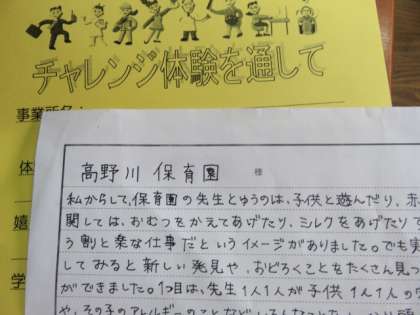 チャレンジ体験を通して
事業所名：
体
嬉
学
高野川 保育園 様
私からして、保育園の先生とゆうのは、子供と遊んだり、赤
関しては、おむつをかえてあげたり、ミルクをあげたりで
う割と楽な仕事だというイメージがありました。でも実
してみると新しい発見や、おどろくことをたくさん見つ
ができました。1つ目は、先生1人1人が子供1人1人の
や、その子のアレルギーのことなど